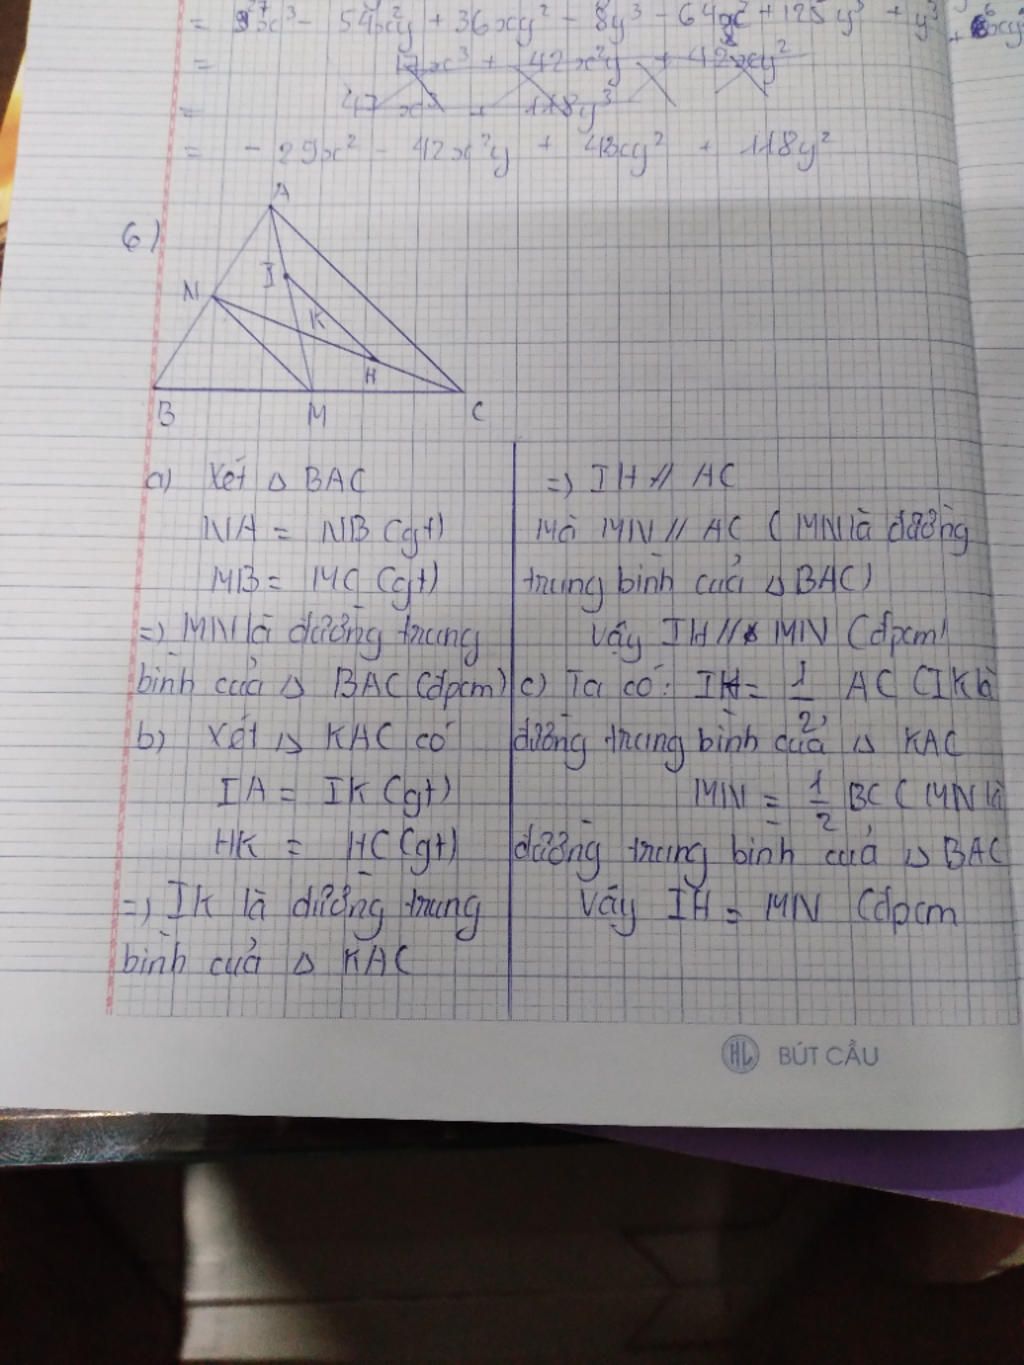 = 27x³ - 54x²y + 36xy² - 8y³ - 64x² + 125y³ + y³ + 6xy
=
47x³ + 118y³
=
= - 29x² - 42x²y + 48xy² + 118y²
6)
A
N
I
K
H
B
M
C
a) Xét △ BAC
NA = NB (gt)
MB = MC (gt)
=) MN là đường trung
bình của △ BAC (đpcm)
b) Xét △ KAC có
IA = IK (gt)
HK = HC (gt)
=) IK là đường trung
bình của △ KAC
=) IH // AC
Mà MN // AC ( MN là đường
trung bình của △ BAC)
Vậy IH // MN (đpcm)
c) Ta có: IH = 1/2 AC (IK là
đường trung bình của △ KAC
MN = 1/2 BC ( MN là
đường trung bình của △ BAC
Vậy IH = MN (đpcm
HL BÚT CẦU